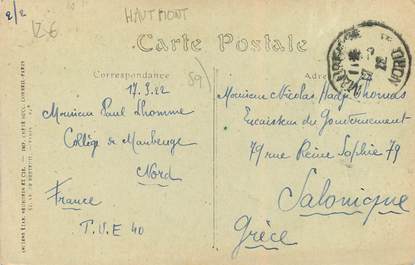 2/2
HAUTMONT
Carte Postale
Correspondance
17.3.22
Monsieur Paul Lhomme
Collège de Maubeuge
Nord
France
T.V.E 40
59
Monsieur Nicolas Hadji Thomas
Encaisseur du Gouvernement
79 rue Reine Sophie 79
Salonique
Grèce
NORD